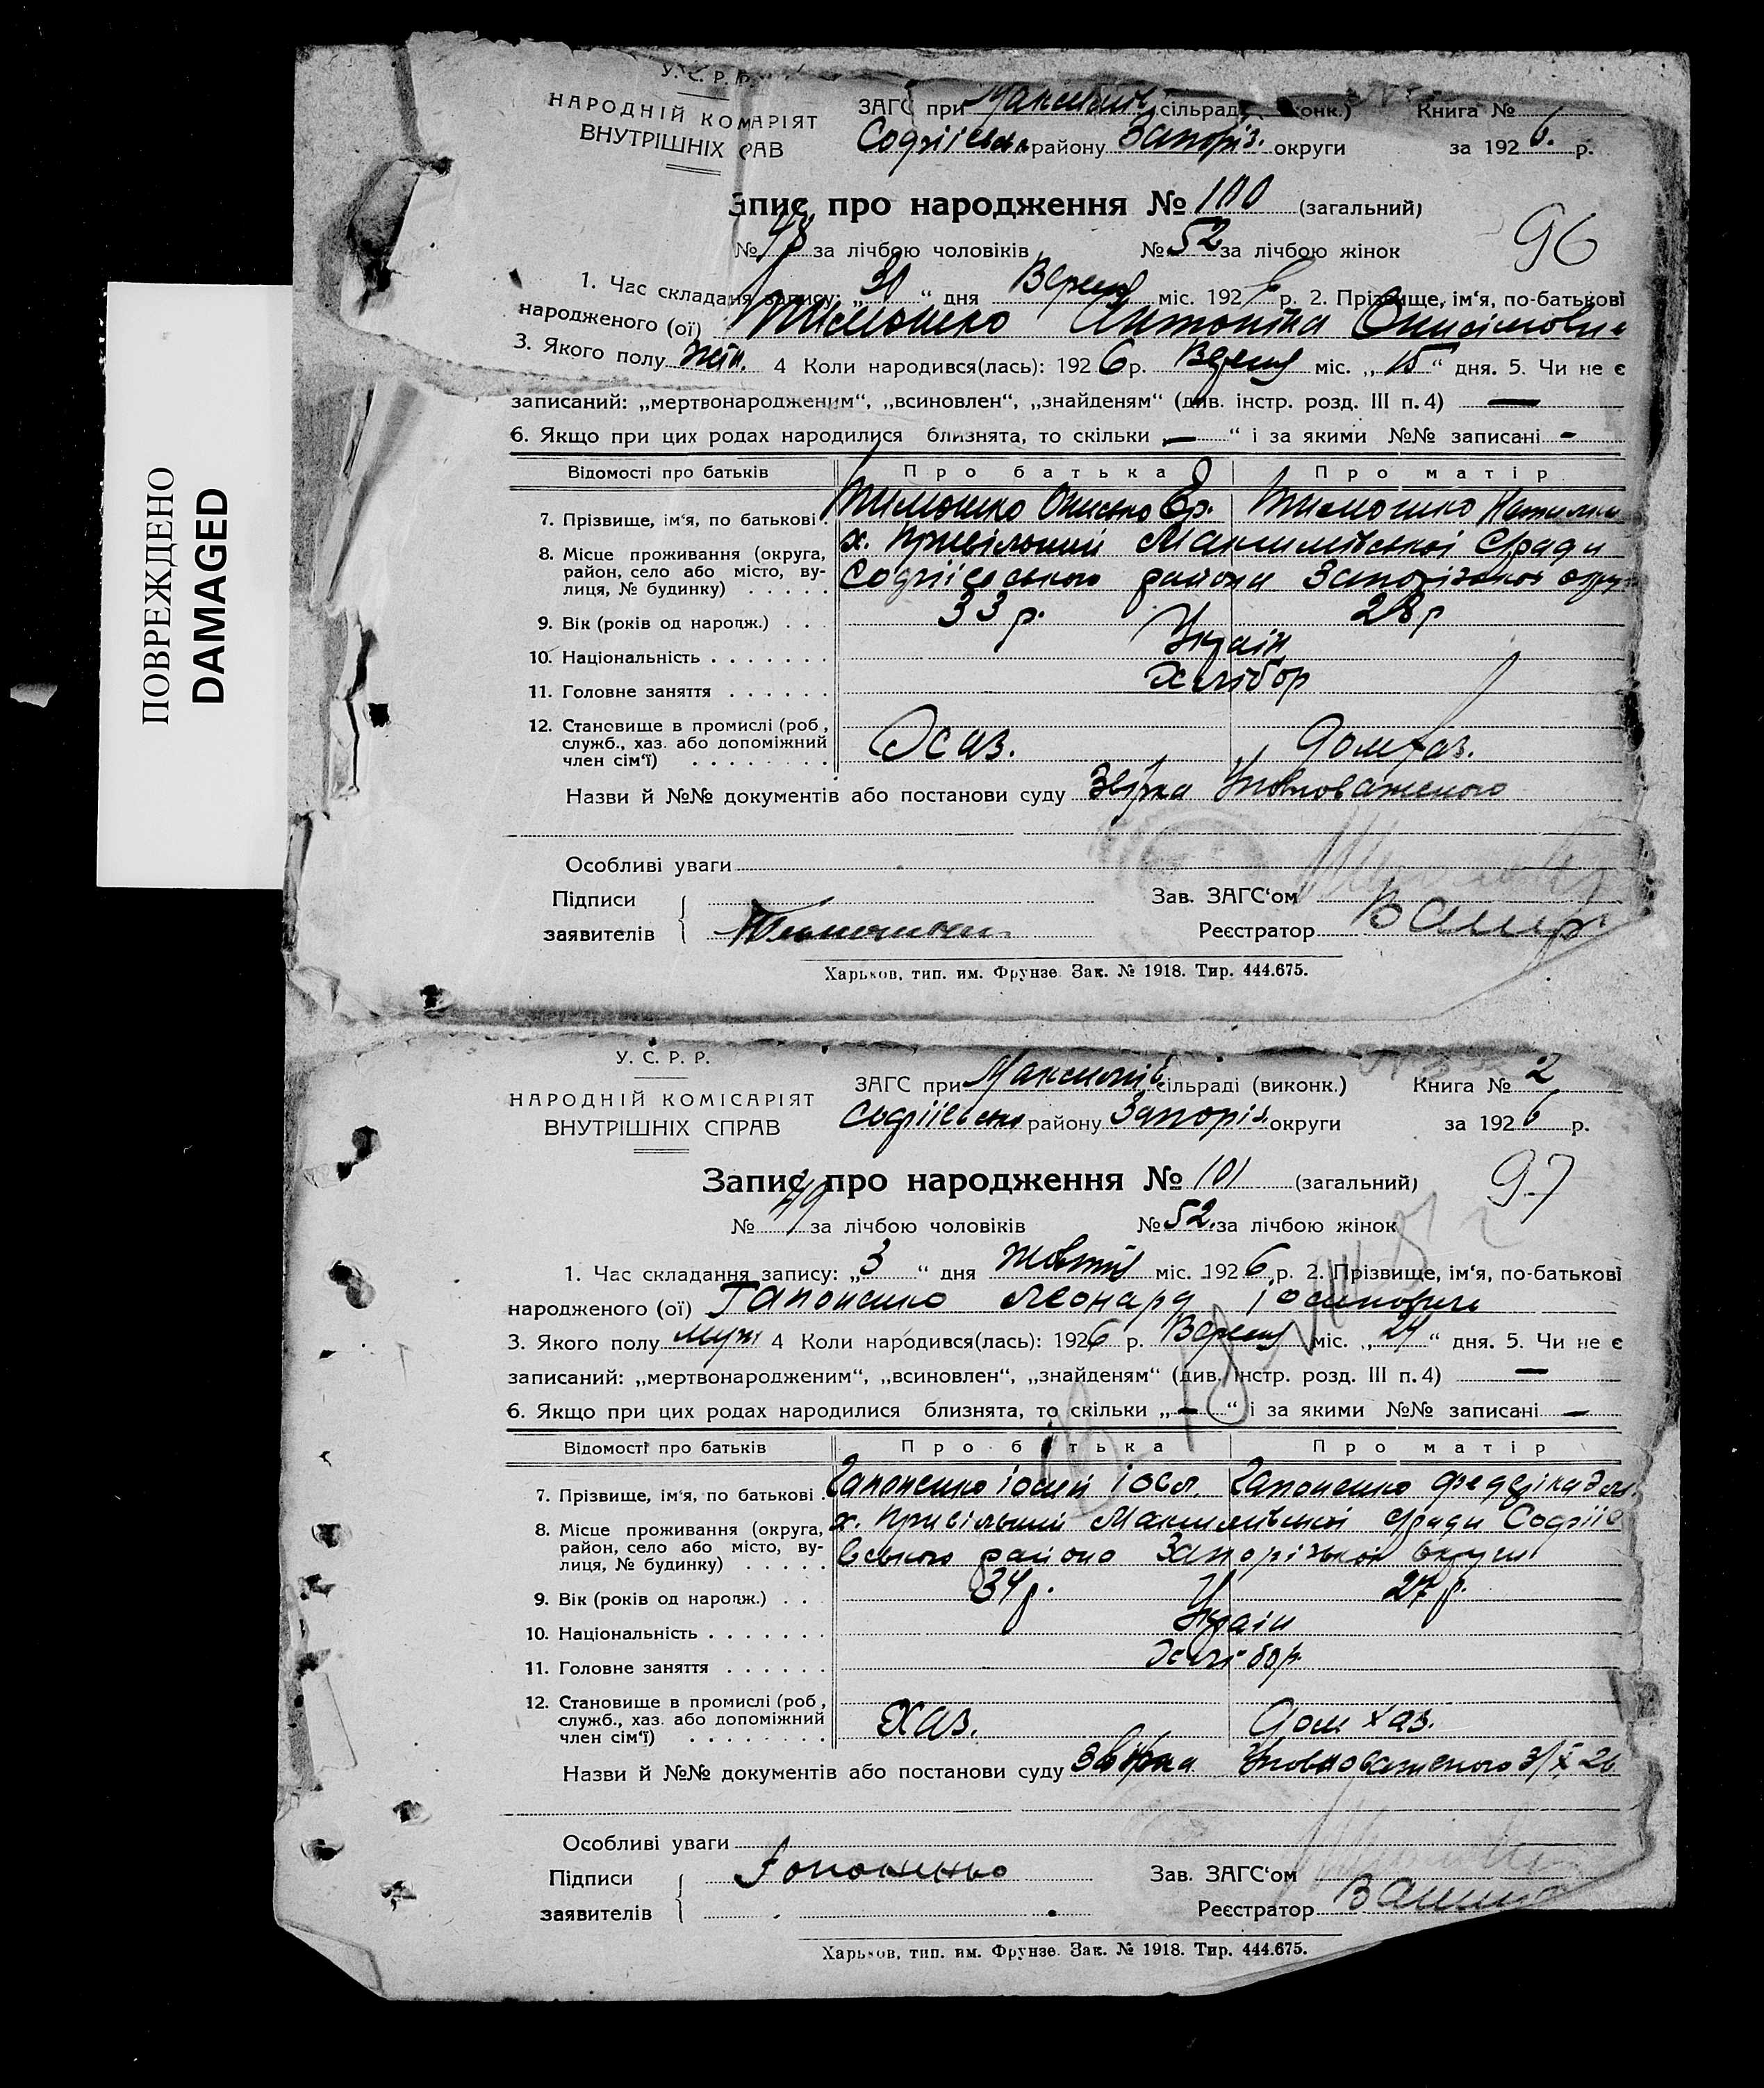 ПОВРЕЖДЕНО
DAMAGED
У. С. Р. Р.
НАРОДНІЙ КОМАРІЯТ
ВНУТРІШНІХ РАВ
ЗАГС при Максимів сільраді онк.) Книга №
Софіївськ району Запоріз. округи за 1926. р.
Запис про народження № 100 (загальний)
96
№ 48 за лічбою чоловіків № 52 за лічбою жінок
1. Час складаня запису: „30“ дня Вересн міс. 1926 р. 2. Прізвище, ім‘я, по-батькові
народженого (ої) Тимошко Антоніна Онисімовна
3. Якого полу жін. 4 Коли народився(лась): 1926 р. Вересн міс. „15“ дня. 5. Чи не є
записаний: „мертвонародженим“, „всиновлен“, „знайденям“ (див. інстр. розд. III п. 4) —
6. Якщо при цих родах народилися близнята, то скільки „—“ і за якими №№ записані -
Відомості про батьків Про батька Про матір
7. Прізвище, ім‘я, по батькові . Тимошко Онисько Тимошко Наталка
8. Місце проживання (округа, район, село або місто, вулиця, № будинку) . . . . . х. Привільний Максимівської С/ради
Софіївського района Запорізької округ
9. Вік (років од народж.) . . . 33 р. 28 р
10. Національність . . . . . . . Україн
11. Головне заняття . . . . . . Хлібор
12. Становище в промислі (роб., служб., хаз. або допоміжний член сім‘ї) . . . . . . . . Хаз. Домхаз.
Назви й №№ документів або постанови суду Уповноваженого
Особливі уваги
Підписи
заявителів
Зав. ЗАГС‘ом
Реєстратор
Харьков, тип. им. Фрунзе. Зак. № 1918. Тир. 444.675.
У. С. Р. Р.
НАРОДНІЙ КОМІСАРІЯТ
ВНУТРІШНІХ СПРАВ
ЗАГС при Максимів сільраді (виконк.) Книга № 2
Софіївськ району Запоріз. округи за 1926 р.
Запис про народження № 101 (загальний)
97
№ 49 за лічбою чоловіків № 52. за лічбою жінок
1. Час складання запису: „3“ дня Жовтн міс. 1926 р. 2. Прізвище, ім‘я, по-батькові
народженого (ої) Гапоненко Леонард Іосипович
3. Якого полу муж 4 Коли народився(лась): 1926 р. Вересн міс. „24“ дня. 5. Чи не є
записаний: „мертвонародженим“, „всиновлен“, „знайденям“ (див. інстр. розд. III п. 4) —
6. Якщо при цих родах народилися близнята, то скільки „—“ і за якими №№ записані —
Відомості про батьків Про батька Про матір
7. Прізвище, ім‘я, по батькові . Гапоненко Іосип Іос. Гапоненко
8. Місце проживання (округа, район, село або місто, вулиця, № будинку) . . . . . х. Привільний Максимівської С/ради Софіїв
вського району Запорізької округи
9. Вік (років од народж.) . . . 34 р. 27 р.
10. Національність . . . . . . . Україн
11. Головне заняття . . . . . . Хлібор
12. Становище в промислі (роб., служб., хаз. або допоміжний член сім‘ї) . . . . . . . . Хаз. Дом хаз.
Назви й №№ документів або постанови суду Уповноваженого 3/X 26
Особливі уваги
Підписи
заявителів
Зав. ЗАГС‘ом
Реєстратор
Харьков, тип. им. Фрунзе. Зак. № 1918. Тир. 444.675.